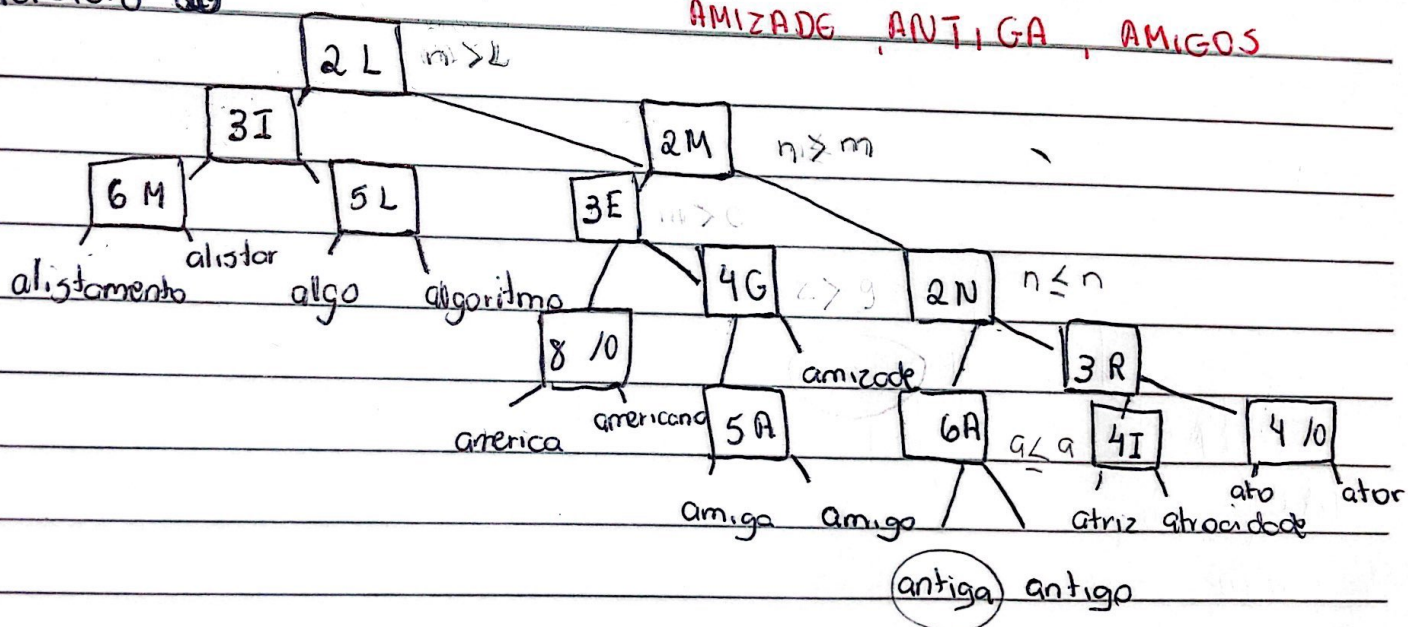 AMIZADE, ANTIGA, AMIGOS
2L m > L
3I 2M n > m
6M 5L 3E
alistamento alistar algo algoritmo 4G 2N n ≤ n
8 \0 amizade 3R
america americano 5A 6A a ≤ a 4I 4 \0
amiga amigo atriz atrocidade ato ator
antiga antigo